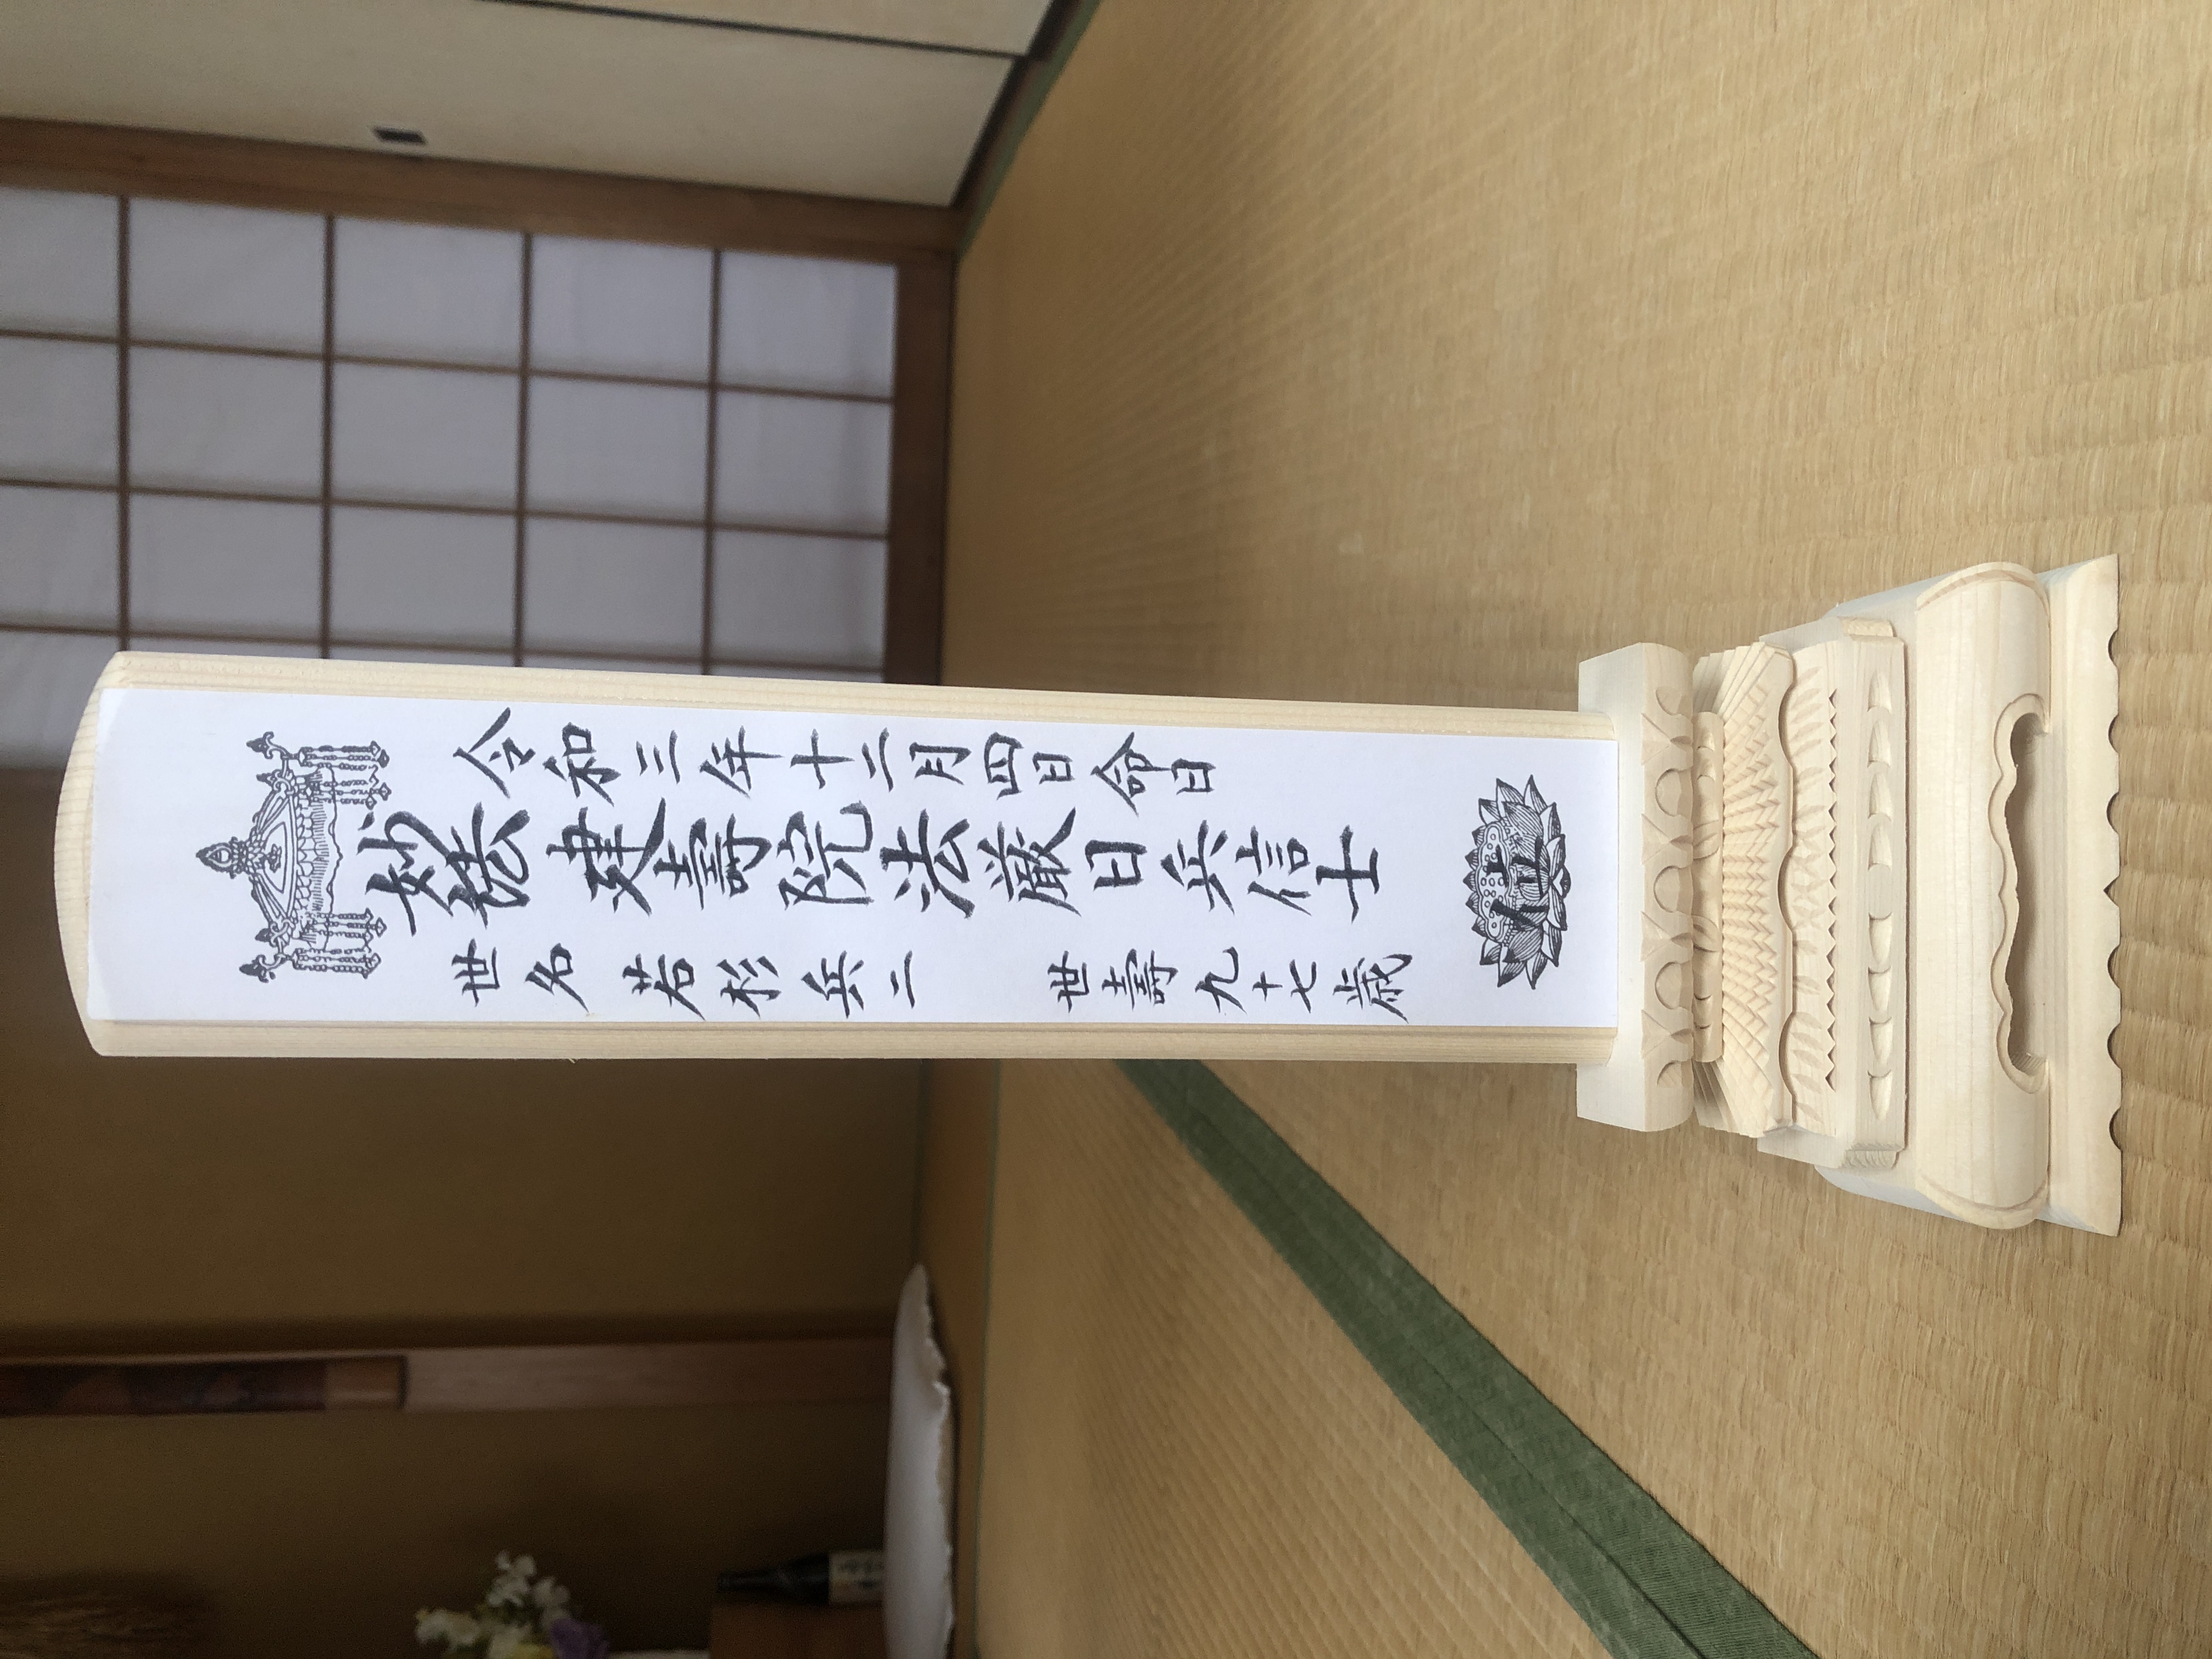 令和三年十二月四日命日
妙法 建壽院法厳日兵信士 位
世名 若杉兵二 世壽九十七歳